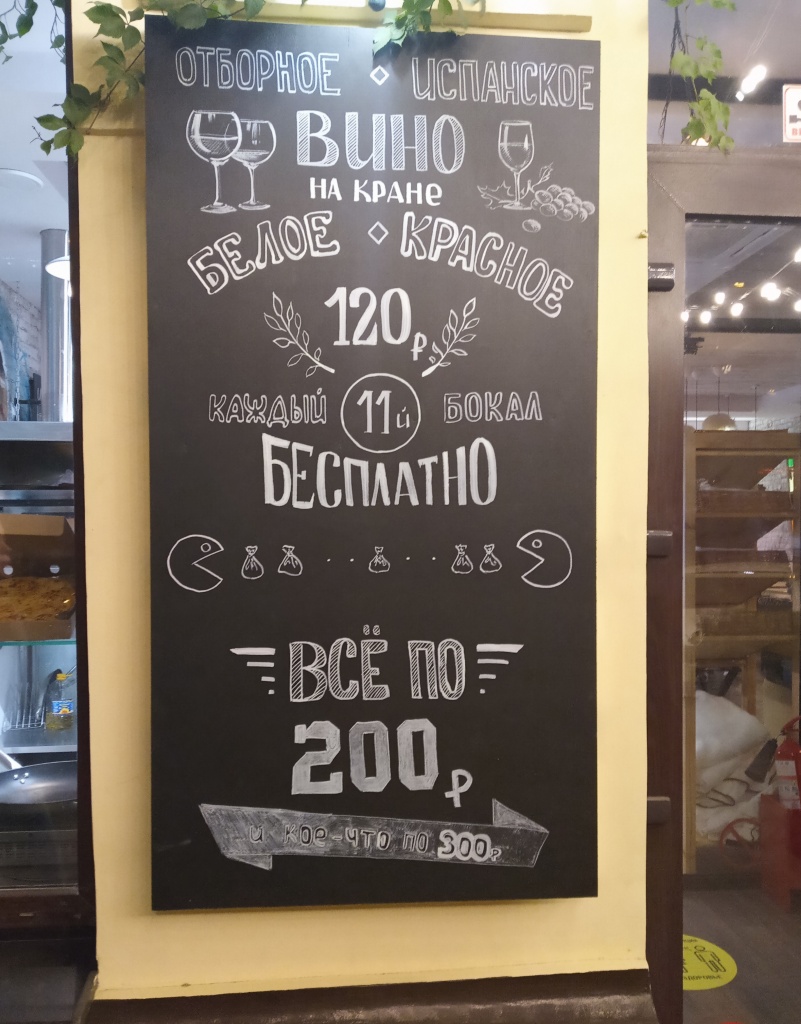 ОТБОРНОЕ ◇ ИСПАНСКОЕ
ВИНО
НА КРАНЕ
БЕЛОЕ ◇ КРАСНОЕ
120₽
КАЖДЫЙ 11й БОКАЛ
БЕСПЛАТНО
ВСЁ ПО
200₽
и кое-что по 300₽